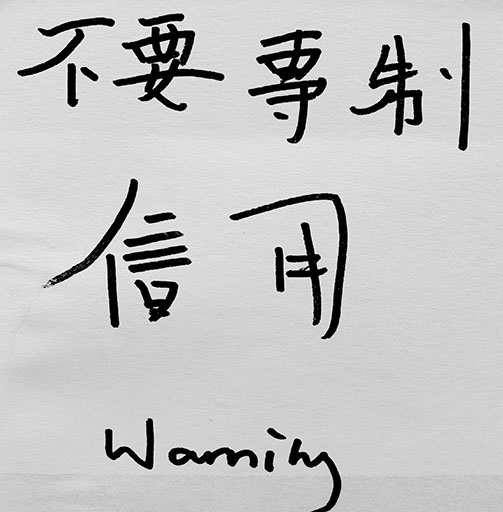 不要専制
信用
Warning